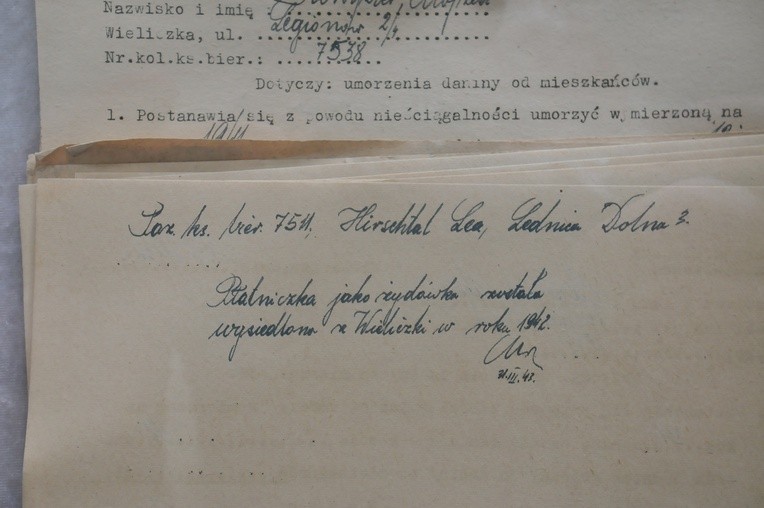 Nazwisko i imię :
Wieliczka, ul. Legionów 2/4
Nr.kol.ks.bier.: 7538
Dotyczy: umorzenia daniny od mieszkańców.
1. Postanawia się z powodu nieściągalności umorzyć wymierzoną na
Poz. ks. bier. 7511. Hirschtal Lea, Lednica Dolna 3.
Płatniczka jako żydówka została
wysiedlona z Wieliczki w roku 1942.